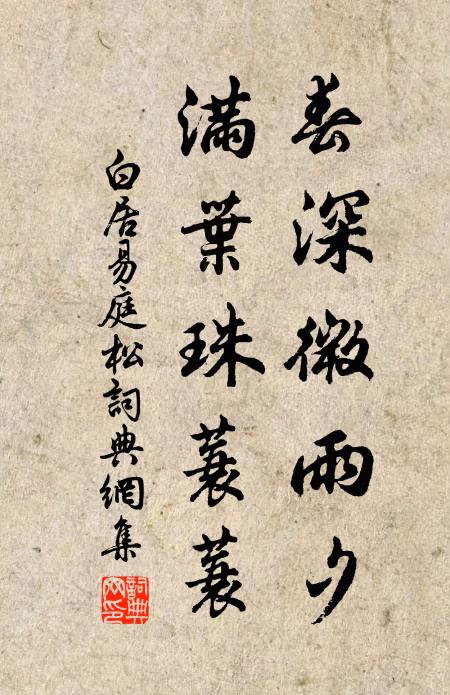 春深微雨夕
滿葉珠蓑蓑
白居易庭松詞典網集
詞典網印